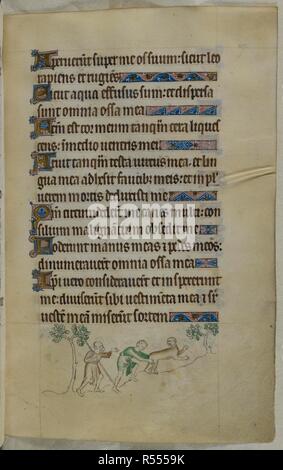 Aperuerunt super me os suum: sicut leo
rapiens et rugiens
Sicut aqua effusus sum: et dispersa
sunt omnia ossa mea
Factum est cor meum tanq̄m cera liques
cens: in medio ventris mei
Aruit tanq̄m testa virtus mea, et lin
gua mea adhesit faucib; meis: et in pul
verem mortis deduxisti me
circumdederunt me canes multi: con
silium malignantium obsedit me
Foderunt manus meas et pedes meos:
dinumeraverunt omnia ossa mea
Ipsi vero consideraverunt et inspexerunt
me: diviserunt sibi vestimenta mea et sr̄
vestem meā miserunt sortem
alamy
R5559K